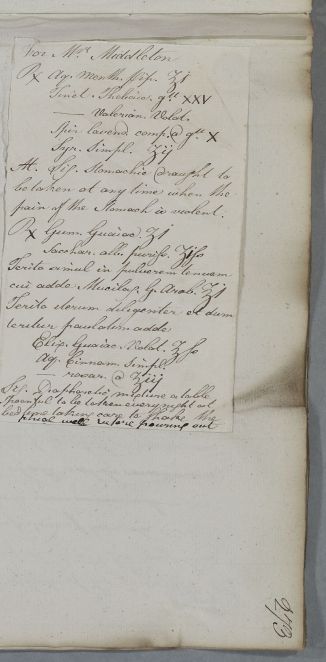 For Mrs Middleton
Rx Aq. Menth. Pip. ʒj
Tinct. Thebaic. gtt XXV
—— Valerian. Volat.
Spir. Lavend. comp. @ gtt X
Syr. Simpl. ʒij
M. Sig. Stomachic draught to
be taken at any time when the
pain of the Stomach is violent.
Rx Gum. Guaiac. ʒj
Sacchar. alb. puriss. ʒiss
Terito simul in pulverem tenuem
cui adde Mucilag. G. Arab. ʒj
Terito iterum diligenter et dum
teritur paulatim adde
Elix. Guaiac. Volat. ʒss
Aq. Cinnam. Simpl.
—— rosar. @ ʒiij
Sig. Diaphoretic mixture a table
spoonful to be taken every night at
bed time taking care to shake the
phial well before pouring out
273